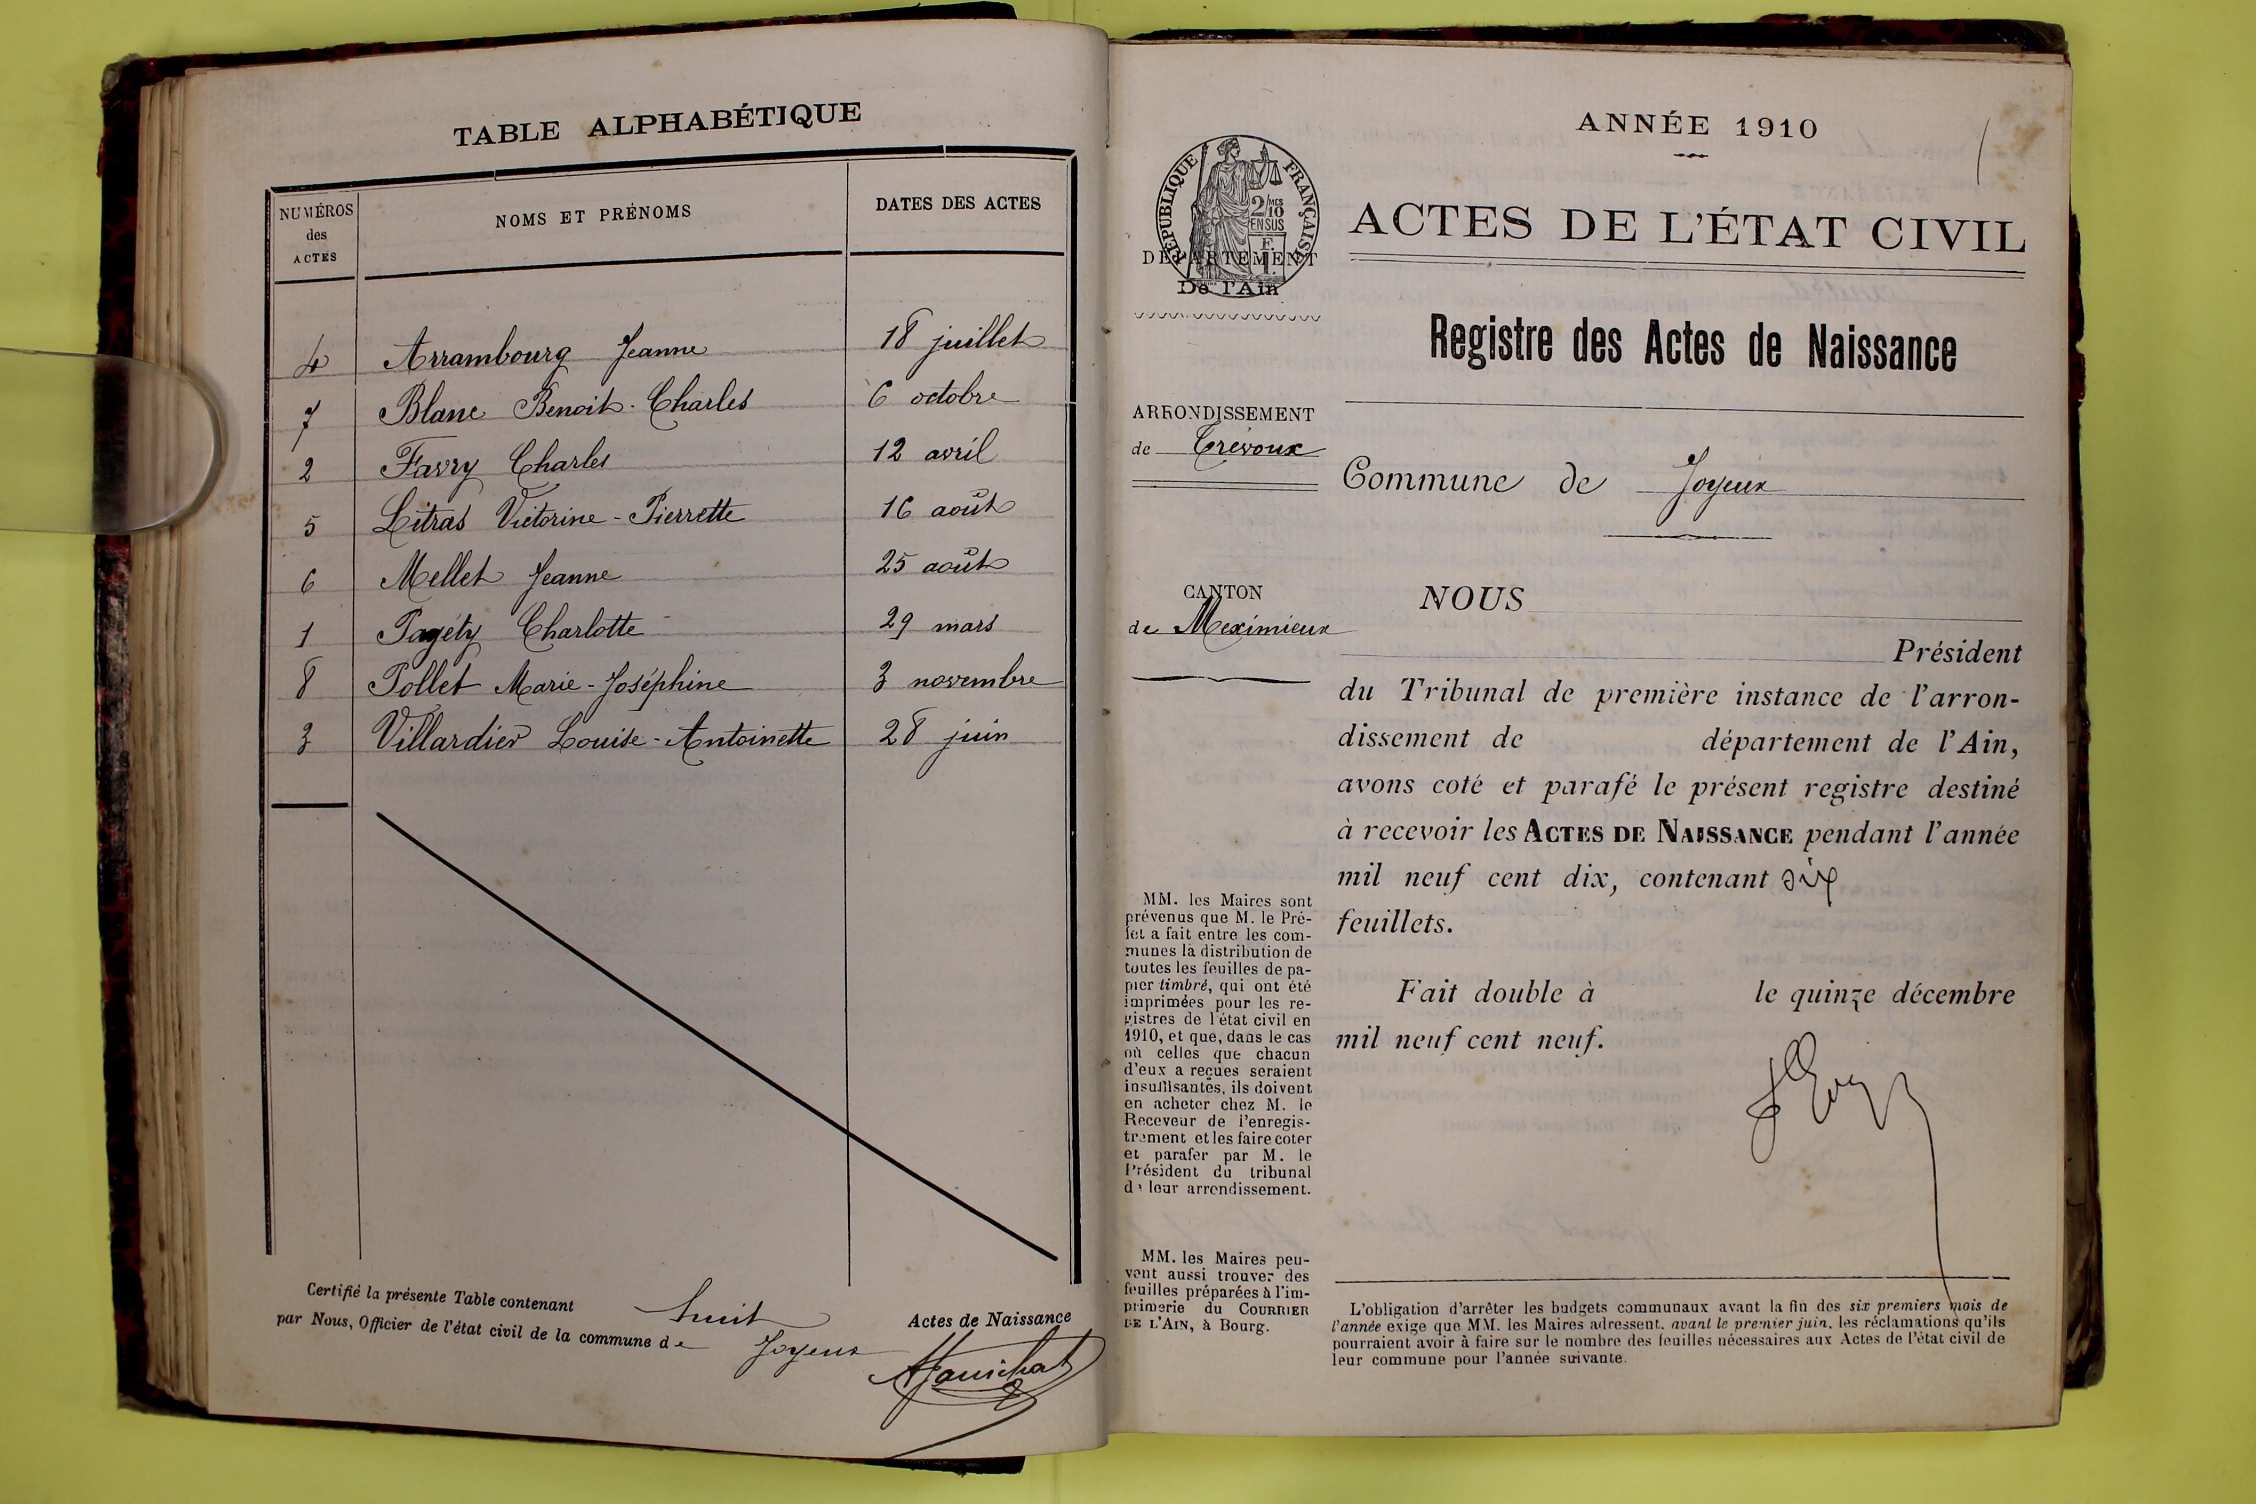 TABLE ALPHABÉTIQUE
NUMÉROS
des
ACTES
NOMS ET PRÉNOMS
DATES DES ACTES
4 Arrambourg Jeanne 18 juillet
7 Blanc Benoit-Charles 6 octobre
2 Favry Charles 12 avril
5 Litras Victorine-Pierrette 16 août
6 Mellet Jeanne 25 août
1 Pagéty Charlotte 29 mars
8 Pollet Marie-Joséphine 3 novembre
3 Villardier Louise-Antoinette 28 juin
Certifié la présente Table contenant huit Actes de Naissance
par Nous, Officier de l'état civil de la commune de Joyeux
ANNÉE 1910
1
RÉPUBLIQUE FRANÇAISE
2/10 MES
EN SUS
ACTES DE L'ÉTAT CIVIL
DÉPARTEMENT
De l'Ain
Registre des Actes de Naissance
ARRONDISSEMENT
de Trévoux
Commune de Joyeux
CANTON
de Meximieux
NOUS
Président
du Tribunal de première instance de l'arron-
dissement de département de l'Ain,
avons coté et parafé le présent registre destiné
à recevoir les ACTES DE NAISSANCE pendant l'année
mil neuf cent dix, contenant six
feuillets.
Fait double à le quinze décembre
mil neuf cent neuf.
MM. les Maires sont
prévenus que M. le Pré-
fet a fait entre les com-
munes la distribution de
toutes les feuilles de pa-
pier timbré, qui ont été
imprimées pour les re-
gistres de l'état civil en
1910, et que, dans le cas
où celles que chacun
d'eux a reçues seraient
insuffisantes, ils doivent
en acheter chez M. le
Receveur de l'enregis-
trement et les faire coter
et parafer par M. le
Président du tribunal
de leur arrondissement.
MM. les Maires peu-
vent aussi trouver des
feuilles préparées à l'im-
primerie du COURRIER
DE L'AIN, à Bourg.
L'obligation d'arrêter les budgets communaux avant la fin des six premiers mois de
l'année exige que MM. les Maires adressent, avant le premier juin, les réclamations qu'ils
pourraient avoir à faire sur le nombre des feuilles nécessaires aux Actes de l'état civil de
leur commune pour l'année suivante.